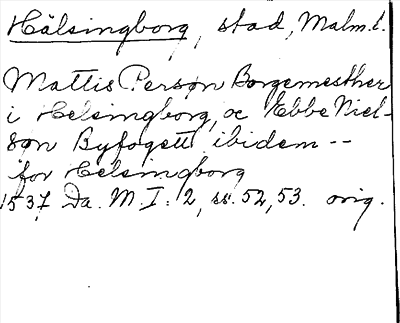 Hälsingborg, stad, Malm. l.
Mattis Persøn Borgemesther
i Helsingborg, oc Ebbe Niel-
søn Byfogett ibidem --
for Helsingborg
1537 Da. M. I: 2, ss. 52, 53. orig.